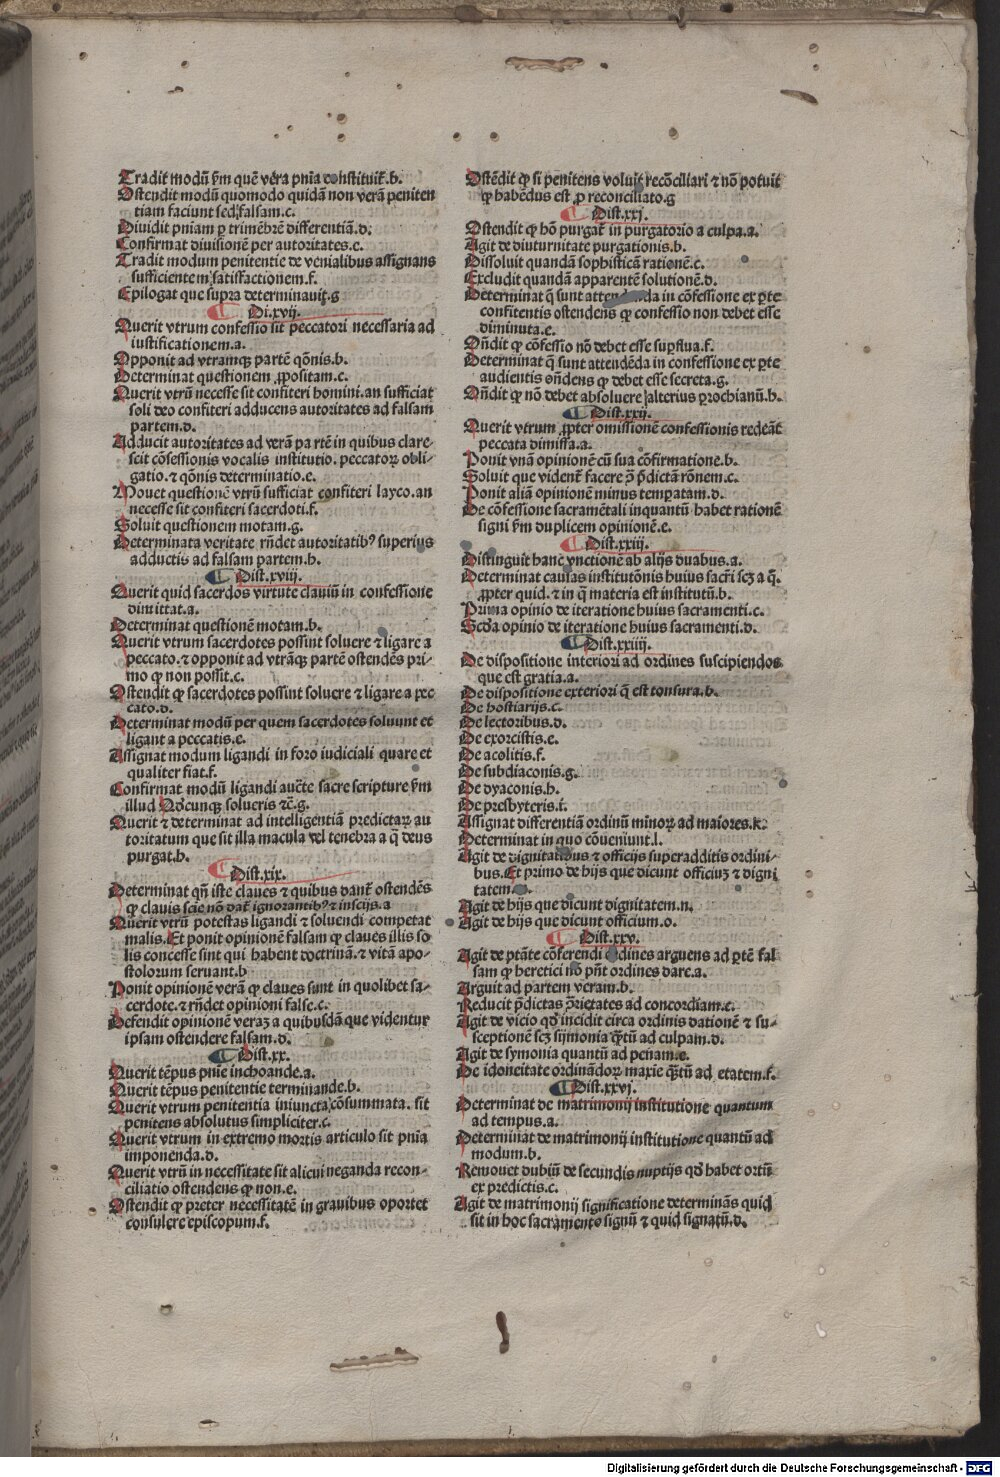 Tradit modū ẜm quē vera pnīa constituit̄.b.
Ostendit modū quomodo quidā non verā peniten
tiam faciunt sed falsam.c.
Diuidit pniam ꝑ trimēbrē differentiā.d.
Confirmat diuisionē per autoritates.e.
Tradit modum penitentie de venialibus assignans
sufficientem satisfactionem.f.
Epilogat que supra determinauit.g
Di.xvij.
Querit vtrum confessio sit peccatori necessaria ad
iustificationem.a.
Opponit ad vtramqꝫ partē qōnis.b.
Determinat questionem ꝓpositam.c.
Querit vtrū necesse sit confiteri homini.an sufficiat
soli deo confiteri adducens autoritates ad falsam
partem.d.
Adducit autoritates ad verā partē in quibus clare-
scit cōfessionis vocalis institutio. peccatoꝝ obli-
gatio.⁊ qōnis determinatio.e.
Mouet questionē vtrū sufficiat confiteri layco.an
necesse sit confiteri sacerdoti.f.
Soluit questionem motam.g.
Determinata veritate rn̄det autoritatibꝰ superius
adductis ad falsam partem.h.
Dist.xviij.
Querit quid sacerdos virtute clauiū in confessione
dimittat.a.
Determinat questionē motam.b.
Querit vtrum sacerdotes possint soluere ⁊ ligare a
peccato.⁊ opponit ad vtrāqꝫ partē ostendēs pri-
mo ꝙ non possit.c.
Ostendit ꝙ sacerdotes possint soluere ⁊ ligare a pec
cato.d.
Determinat modū per quem sacerdotes soluunt et
ligant a peccatis.e.
Assignat modum ligandi in foro iudiciali quare et
qualiter fiat.f.
Confirmat modū ligandi auct̄e sacre scripture ẜm
illud Qōcunqꝫ solueris ⁊c̄.g.
Querit ⁊ determinat ad intelligentiā predictaꝝ au
toritatum que sit illa macula vel tenebra a q̄ deus
purgat.h.
Dist.xix.
Determinat qn̄ iste claues ⁊ quibus dant̄ ostendēs
ꝙ clauis scie nō dat̄ ignorantibꝰ ⁊ inscijs.a
Querit vtrū potestas ligandi ⁊ soluendi competat
malis.Et ponit opinionē falsam ꝙ claues illis so
lis concesse sint qui habent doctrinā.⁊ vitā apo-
stolorum seruant.b
Ponit opinionē verā ꝙ claues sunt in quolibet sa-
cerdote.⁊ rn̄det opinioni false.c.
Defendit opinionē veraꝫ a quibusdā que videntur
ipsam ostendere falsam.d.
Dist.xx.
Querit tēpus pnīe inchoande.a.
Querit tēpus penitentie terminande.b.
Querit vtrum penitentia iniuncta cōsummata. sit
penitens absolutus simpliciter.c.
Querit vtrum in extremo mortis articulo sit pnīa
imponenda.d.
Querit vtrū in necessitate sit alicui neganda recon-
ciliatio ostendens ꝙ non.e.
Ostendit ꝙ preter necessitatē in grauibus oportet
consulere episcopum.f.
Ostēdit ꝙ si penitens voluit recōciliari ⁊ nō potuit
ꝙ habēdus est ꝓ reconciliato.g
Dist.xxj.
Ostendit ꝙ hō purgat̄ in purgatorio a culpa.a.
Agit de diuturnitate purgationis.b.
Dissoluit quandā sophisticā rationē.c.
Excludit quandā apparentē solutionē.d.
Determinat q̄ sunt attendenda in cōfessione ex ꝑte
confitentis ostendens ꝙ confessio non debet esse
diminuta.e.
Oñdit ꝙ cōfessio nō debet esse suꝑflua.f.
Determinat q̄ sunt attendēda in confessione ex ꝑte
audientis oñdens ꝙ debet esse secreta.g.
Oñdit ꝙ nō debet absoluere alterius ꝑochianū.h.
Dist.xxij.
Querit vtrum ꝓpter omissionē confessionis redeāt
peccata dimissa.a.
Ponit vnā opinionē cū sua cōfirmatione.b.
Soluit que vident̄ facere ꝯ p̄dictā rōnem.c.
Ponit aliā opinionē minus temꝑatam.d.
De cōfessione sacramētali inquantū habet rationē
signi ẜm duplicem opinionē.e.
Dist.xxiij.
Distinguit hanc vnctionē ab alijs duabus.a.
Determinat causas institutōnis huius sacr̄i scꝫ a q̄.
ꝓpter quid.⁊ in q̄ materia est institutū.b.
Prima opinio de iteratione huius sacramenti.c.
Scd̄a opinio de iteratione huius sacramenti.d.
Dist.xxiiij.
De dispositione interiori ad ordines suscipiendos
que est gratia.a.
De dispositione exteriori q̄ est tonsura.b.
De hostiarijs.c.
De lectoribus.d.
De exorcistis.e.
De acolitis.f.
De subdiaconis.g.
De dyaconis.h.
De presbyteris.i.
Assignat differentiā ordinū minoꝝ ad maiores.k.
Determinat in quo cōueniunt.l.
Agit de dignitatibus ⁊ officijs superadditis ordini-
bus.Et primo de hijs que dicunt officiuꝫ ⁊ digni
tatem
Agit de hijs que dicunt dignitatem.n.
Agit de hijs que dicunt officium.o.
Dist.xxv.
Agit de ptāte cōferendi ordines arguens ad ꝑtē fal
sam ꝙ heretici nō pn̄t ordines dare.a.
Arguit ad partem veram.b.
Reducit p̄dictas ꝯrietates ad concordiam.c.
Agit de vicio qd̄ incidit circa ordinis dationē ⁊ su-
sceptionē scꝫ symonia q̄tū ad culpam.d.
Agit de symonia quantū ad penam.e.
De idoneitate ordinādoꝝ maxie q̄tū ad etatem.f.
Dist.xxvj.
Determinat de matrimonij institutione quantum
ad tempus.a.
Determinat de matrimonij institutione quantū ad
modum.b.
Remouet dubiū de secundis nuptijs qd̄ habet ortū
ex predictis.c.
Agit de matrimonij significatione determināsquid
sit in hoc sacramento signū ⁊ quid signatū.d.
Digitalisierung gefördert durch die Deutsche Forschungsgemeinschaft - DFG